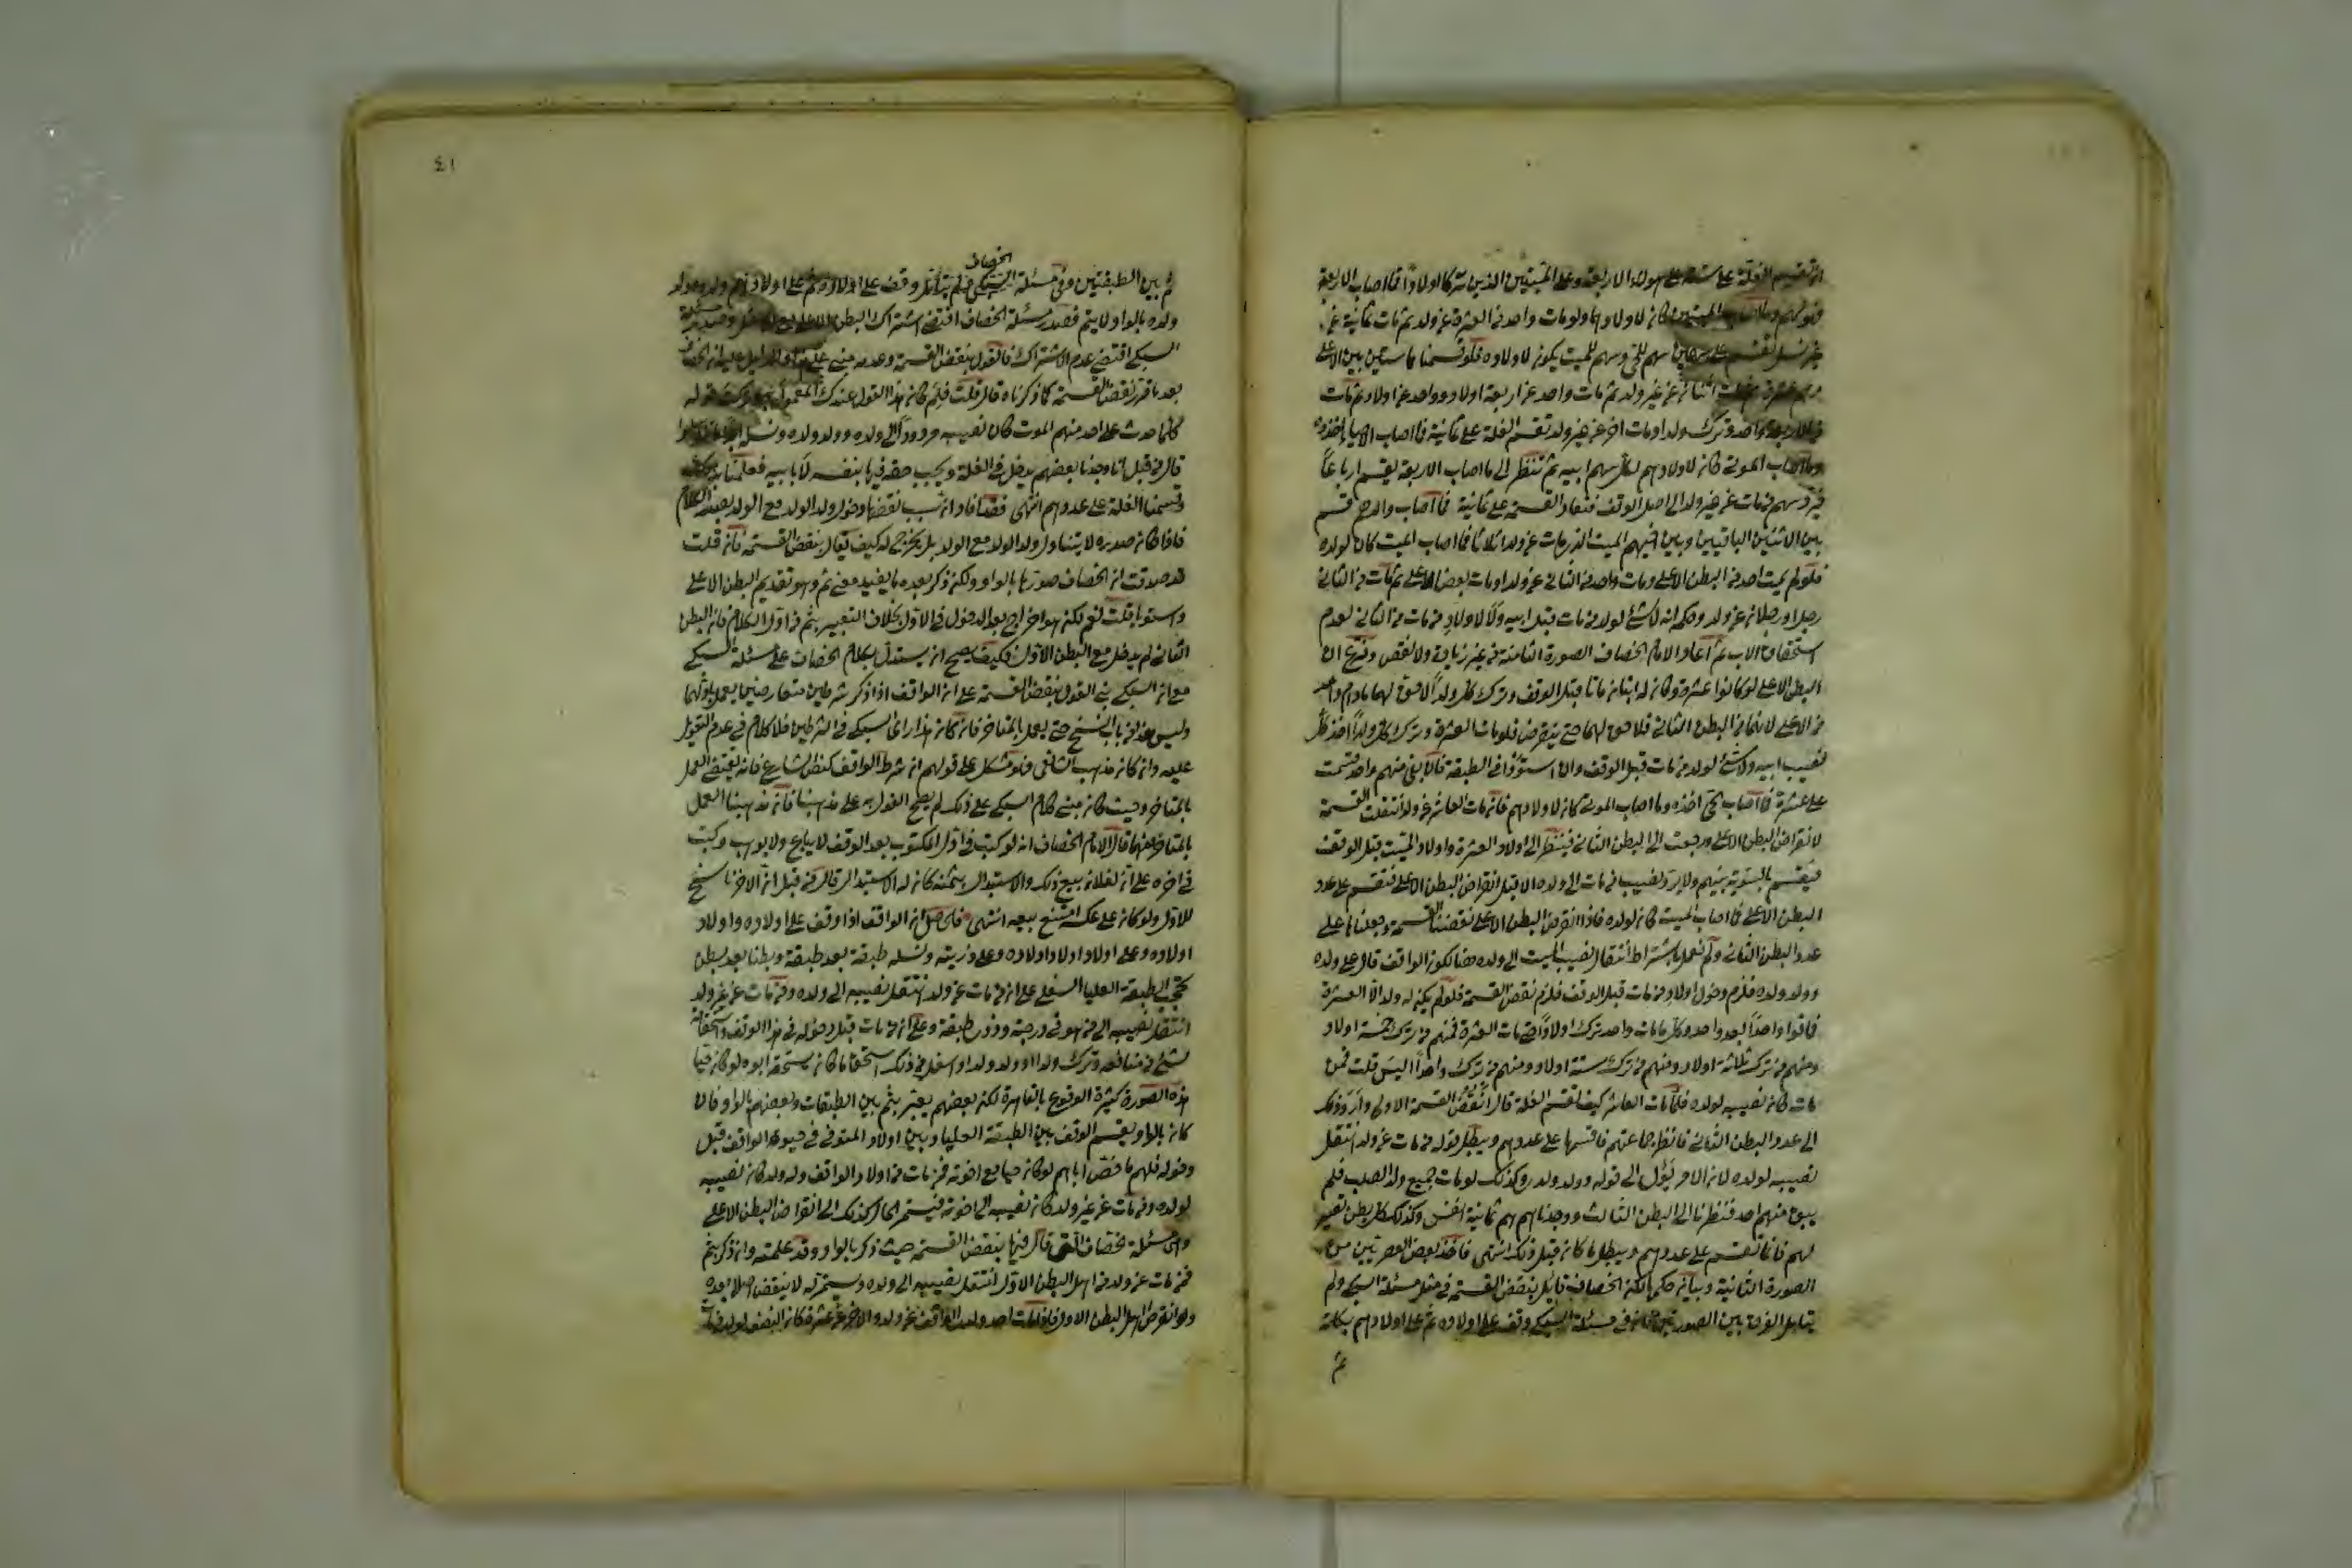 ان تقسيم الغلة على ستة على هؤلاء الاربعة وعلى الميتين الذين تركا اولادا فما اصاب الاربعة
فهو لهم وما اصاب الميتين كان لاولادهما ولو مات واحد من العشرة عن ولد ثم مات ثمانية عن
غير نسل تقسم على سهمين سهم للحي وسهم للميت يكون لاولاده فلو قسمنا
اثنان عن غير ولد ثم مات واحد عن اربعة اولاد وواحد عن اولاد ثم مات
من الاربعة واحد وترك ولدا ومات اخر عن غير ولد تقسم الغلة على ثمانية فما اصاب الاحياء اخذوه
وما اصاب الموتى كان لاولادهم لكل سهم ابيه ثم تنظر الى ما اصاب الاربعة يقسم ارباعا
فيرد سهم من مات عن غير ولد الى اصل الوقف فتعاد القسمة على ثمانية فما اصاب والدهم قسم
بين الاثنين الباقيين وبين اخيهم الميت الذي مات عن ولد اثلاثا فما اصاب الميت كان لولده
فلو لم يمت احد من البطن الاعلى ومات واحد من الثاني عن ولد او مات بعض الاعلى ثم مات من الثاني
رجل او رجلان عن ولد وحكمه انه لا شئ لولد من مات قبل ابيه ولا لاولاد من مات من الثاني لعدم
استحقاق الاب ثم اعاد الامام الخصاف الصورة الثامنة من غير زيادة ولا نقص وفرع ان
البطن الاعلى لو كانوا عشرة وكان له ابنان ماتا قبل الوقف وترك كل ولدا لا حق لهما ما دام واحد
من الاعلى لانهما من البطن الثاني فلا حق لهما حتى ينقرض فلو مات العشرة وترك كل ولدا اخذ كل
نصيب ابيه ولا شئ لولد من مات قبل الوقف وان استووا في الطبقة فان بقي منهم واحد قسمت
على عشرة فما اصاب الحي اخذه وما اصاب الموتى كان لاولادهم فان مات العاشر عن ولد انتقضت القسمة
لانقراض البطن الاعلى ورجعت الى البطن الثاني فينظر الى اولاد العشرة واولاد الميت قبل الوقف
فيقسم بالسوية بينهم ولا يرد نصيب من مات الى ولده الا قبل انقراض البطن الاعلى فتقسم على عدد
البطن الاعلى فما اصاب الميت كان لولده فاذا انقرض البطن الاعلى نقضنا القسمة وجعلناها على
عدد البطن الثاني ولم نعمل باشتراط انتقال نصيب الميت الى ولده هنا لكون الواقف قال على ولده
وولد ولده فلزم دخول اولاد من مات قبل الوقف فلزم نقض القسمة فلو لم يكن له ولد الا العشرة
فماتوا واحدا بعد واحد وكلما مات واحد ترك اولادا حتى مات العشرة فمنهم من ترك خمسة اولاد
ومنهم من ترك ثلاثة اولاد ومنهم من ترك ستة اولاد ومنهم من ترك واحدا اليس قلت فمن
مات كان نصيبه لولده فلما مات العاشر كيف تقسم الغلة قال انقض القسمة الاولى وارد ذلك
الى عدد البطن الثاني فانظر جماعتهم فاقسمها على عددهم ويبطل قوله من مات عن ولد انتقل
نصيبه لولده لان الامر يؤل الى قوله وولد ولدي وكذلك لو مات جميع ولد الصلب فلم
يبق منهم احد فنظرنا الى البطن الثالث فوجدناهم ثمانية انفس وكذلك كل بطن تصير
لهم فانما تقسم على عددهم ويبطل ما كان قبل ذلك انتهى فاخذ بعض العصريين من
الصورة الثانية وبيان حكمها ان الخصاف قائل بنقض القسمة في مثل مسئلة السبكي ولم
يتامل الفرق بين الصورتين فان في مسئلة السبكي وقف على اولاده ثم على اولادهم بكلمة
ثم
٤١
الخصاف
ثم بين الطبقتين وفي مسئلة وقف على اولاده ولد
ولده بالواو لا بثم فصدر مسئلة الخصاف اقتضى اشتراك البطن الاعلى مع وصدر مسئلة
السبكي اقتضى عدم الاشتراك فالقول بنقض القسمة وعدمه مبني على ان الخصاف
بعد ما قرر نقض القسمة كما ذكرناه قال قلت فلم كان هذا القول عندك المعمول به وتركت قوله
كلما حدث على احد منهم الموت كان نصيبه مردودا الى ولده وولد ولده ونسله
قال من قبل انا وجدنا بعضهم يدخل في الغلة ويجب حقه فيها بنفسه لا بابيه فعملنا بذلك
وقسمنا الغلة على عددهم انتهى فقد افاد ان سبب نقضها دخول ولد الولد مع الولد بصدر الكلام
فاذا كان صدره لا يتناول ولد الولد مع الولد بل يخرج له كيف يقال بنقض القسمة فان قلت
قد صدقت ان الخصاف صورها بالواو ولكن ذكر بعده ما يفيد معنى ثم وهو تقديم البطن الاعلى
واستويا قلت نعم لكنه هو اخراج بعد الدخول في الاول بخلاف التعبير بثم من اول الكلام فان البطن
الثاني لم يدخل مع البطن الاول فكيف يصح ان يستدل بكلام الخصاف على مسئلة السبكي
مع ان السبكي بنى القول بنقض القسمة على ان الواقف اذا ذكر شرطين متعارضين يعمل باولهما
وليس هذا من باب النسخ حتى يعمل بالمتاخر فان كان هذا راي السبكي في الشرطين فلا كلام في عدم التعويل
عليه وان كان مذهب الشافعي فهو مشكل على قولهم ان شرط الواقف كنص الشارع فانه يقتضي العمل
بالمتاخر وحيث كان مبنى كلام السبكي على ذلك لم يصح القول به على مذهبنا فان مذهبنا العمل
بالمتاخر منهما قال الامام الخصاف انه لو كتب في اول المكتوب بعد الوقف لا يباع ولا يوهب وكتب
في اخره على ان لفلان بيع ذلك والاستبدال بثمنه كان له الاستبدال قال من قبل ان الاخر ناسخ
للاول ولو كان على عكسه امتنع بيعه انتهى فالحاصل ان الواقف اذا وقف على اولاده واولاد
اولاده وعلى اولاد اولاد اولاده وعلى ذريته ونسله طبقة بعد طبقة وبطنا بعد بطن
تحجب الطبقة العليا السفلى على ان من مات عن ولد انتقل نصيبه الى ولده ومن مات عن غير ولد
انتقل نصيبه الى من هو في درجته وذوي طبقته وعلى ان من مات قبل دخوله في هذا الوقف واستحقاقه
لشئ من منافعه وترك ولدا او ولد ولد او اسفل من ذلك استحق ما كان يستحقه ابوه لو كان حيا
هذه الصورة كثيرة الوقوع بالقاهرة لكن بعضهم يعبر بثم بين الطبقات وبعضهم بالواو فان
كان بالواو يقسم الوقف بين الطبقة العليا وبين اولاد المتوفى في حيوة الواقف قبل
دخوله فلهم ما خص اباهم لو كان حيا مع اخوته فمن مات من اولاد الواقف وله ولد كان نصيبه
لولده ومن مات عن غير ولد كان نصيبه الى اخوته فيستمر الحال كذلك الى انقراض البطن الاعلى
وهي مسئلة الخصاف التي قال فيها بنقض القسمة حيث ذكر بالواو وقد علمته وان ذكر بثم
فمن مات عن ولد من اهل البطن الاول انتقل نصيبه الى ولده ويستمر له لا ينقض اصلا بعده
ولو انقرض اهل البطن الاول فاذا مات احد ولدي الواقف عن ولد والاخر عن عشرة كان النصف لولد من مات